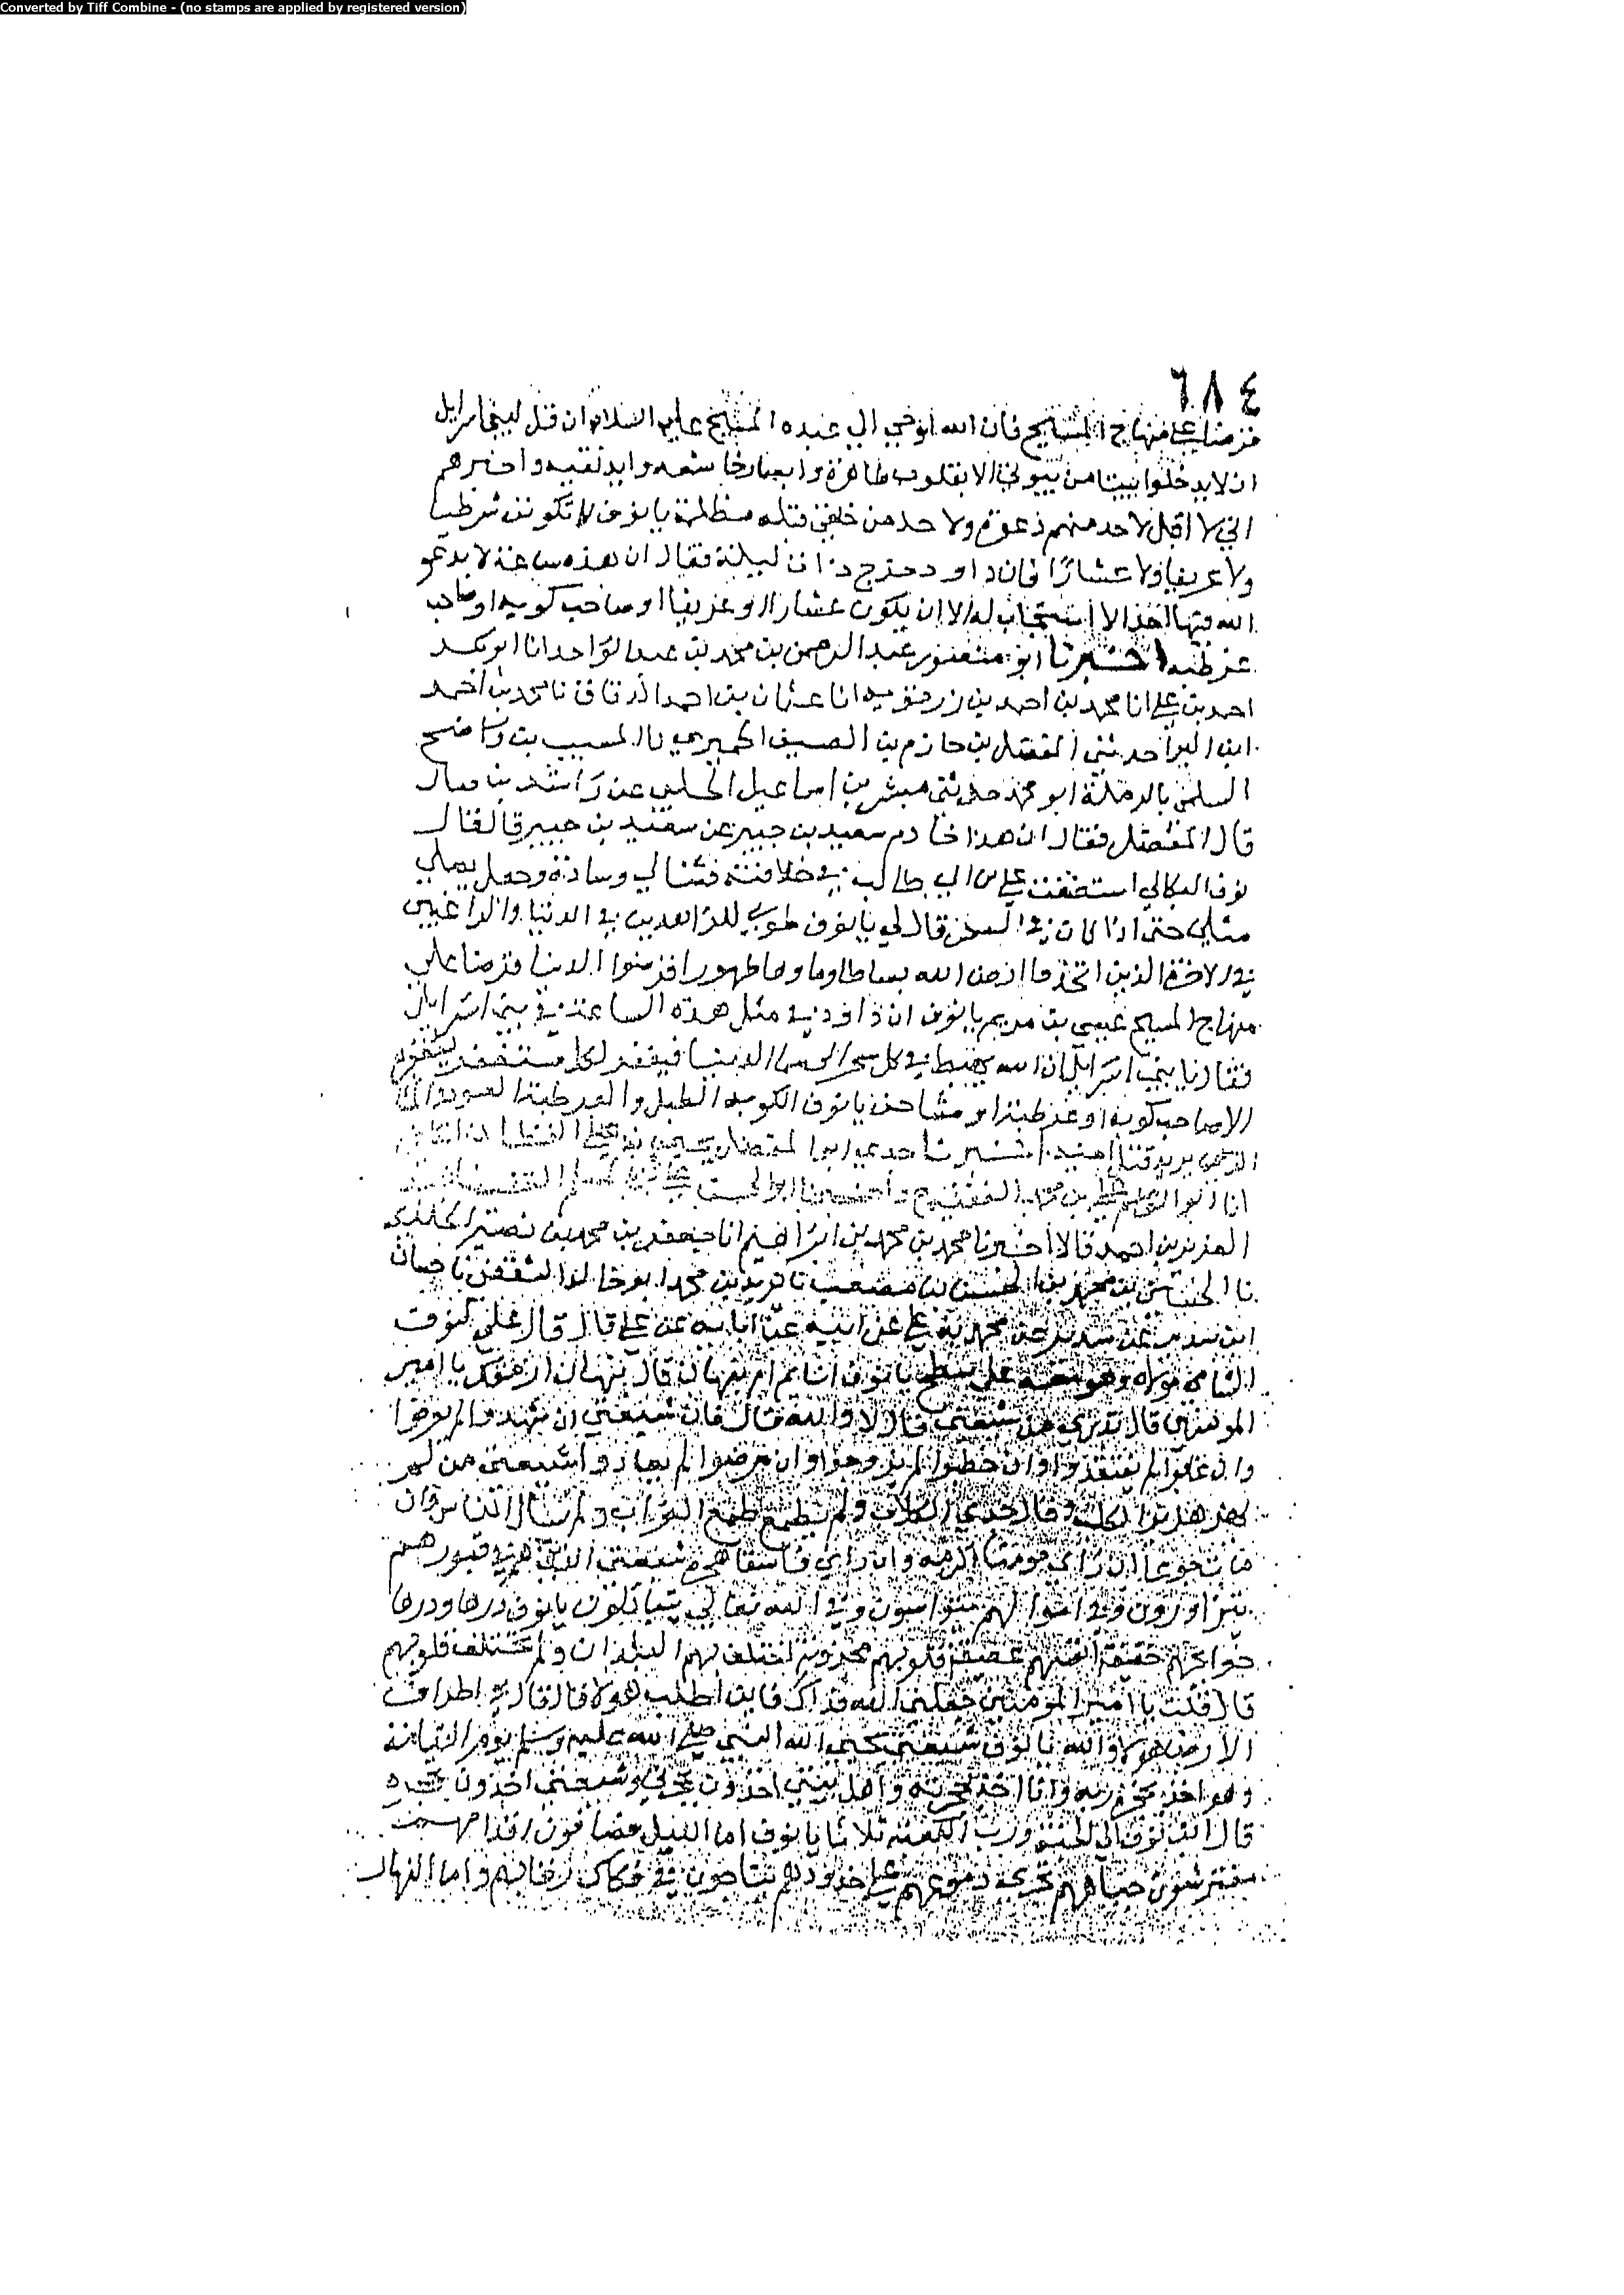 Converted by Tiff Combine - (no stamps are applied by registered version)
٦٨٤
قرضا على منهاج المسيح فان الله اوحى الى عبده المسيح عليه السلام ان قل لبني اسرايل
ان لا يدخلوا بيتا من بيوتي الا بقلوب طاهرة وابصار خاشعه وايد نقيه واخبرهم
اني لا اقبل لاحد منهم دعوة ولاحد من خلقي قبله مظلمة يا نوف لا تكونن شرطيا
ولا عريفا ولا عشارا فان داود خرج ذات ليلة فقال ان هذه ساعة لا يدعو
الله فيها احد الا استجاب له الا ان يكون عشارا او عريفا او صاحب كوبه او صاحب
عرطبه اخبرنا ابو منصور عبد الرحمن بن محمد بن عبد الواحد انا ابو بكر
احمد بن علي انا محمد بن احمد بن رزقويه انا عثمان بن احمد الدقاق نا محمد بن احمد
ابن البرا حدثني الفضل بن حازم بن الحميري نا المسيب بن واضح
السلمي ابو محمد حدثني مبشر بن اسماعيل الحلبي عن راشد بن
قال المفضل فقال ان هذا خادم سعيد بن جبير عن سعيد بن جبير قال قال
نوف البكالي استضفت علي بن ابي طالب في خلافته فثنا لي وسادة وجعل يصلي
حتى اذا كان في السحر قال لي يا نوف طوبى للزاهدين في الدنيا والراغبين
في الاخرة الذين اتخذوا ارض الله بساطا وماوها طهورا قرضوا الدنيا قرضا على
منهاج المسيح عيسى بن مريم يا نوف ان داود في مثل هذه الساعة في بني اسرايل
فقال يا بني اسرايل ان الله يهبط في كل سحر الى الدنيا فيغفر لكل مستغفر
الا صاحب كوبه او عرطبة او مشاحن يا نوف الكوبه الطبل والعرطبة العود
اخبرنا جدي ابو الفضل يحيى بن علي القاضي
انا ابو القاسم بن محمد الفقيه ح واخبرنا ابو الحسن علي بن
العزيز بن احمد قالا اخبرنا محمد بن محمد بن ابراهيم انا جعفر بن محمد بن نصير الخلدي
نا بن محمد بن الحسين بن مصعب نا يزيد بن محمد ابو خالد الثقفي نا حبان
ابن سدير عن سدير عن محمد بن علي عن ابيه عن ابايه عن علي قال قال علي لنوف
الشامي مولاه وهو معه على سطح يا نوف انايم ام نبهان قال نبهان ارمقك يا امير
المومنين قال تدري من شيعتي قال لا والله قال فان شيعتي ان شهدوا لم يعرفوا
وان غابوا لم يفتقدوا وان خطبوا لم يزوجوا وان مرضوا لم يعادوا شيعتي من لم
يهر هرير الكلب وقال جدي الكلاب ولم يطمع طمع الغراب ولم يسال الناس وان
مات جوعا ان راى مومنا اكرمه وان راى فاسقا هجره شيعتي الذين هم في قبورهم
يتزاورون وفي اموالهم يتواسون وفي الله تعالى يتباذلون يا نوف درهم ودرهم
حوايجهم خفيفة انفسهم عفيفة قلوبهم محزونة اختلفت بهم البلدان ولم تختلف قلوبهم
قال قلت يا امير المومنين جعلني الله فداك فاين اطلب هولا قال قال في اطراف
الارض هولا والله يا نوف شيعتي يجيى الله النبي صلى الله عليه وسلم يوم القيامة
وهو اخذ بحجزة ربه وانا اخذ بحجزته واهل بيتي اخذون بحجزتي وشيعتي اخذون بحجزهم
قال اين نوف الى الجنة ورب الكعبة ثلاثا يا نوف اما الليل فصافون اقدامهم
مفترشون جباههم تجري دموعهم على خدودهم يتناجون في فكاك رقابهم واما النهار